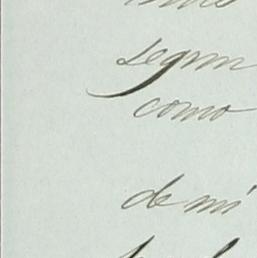 segun
como
de mi